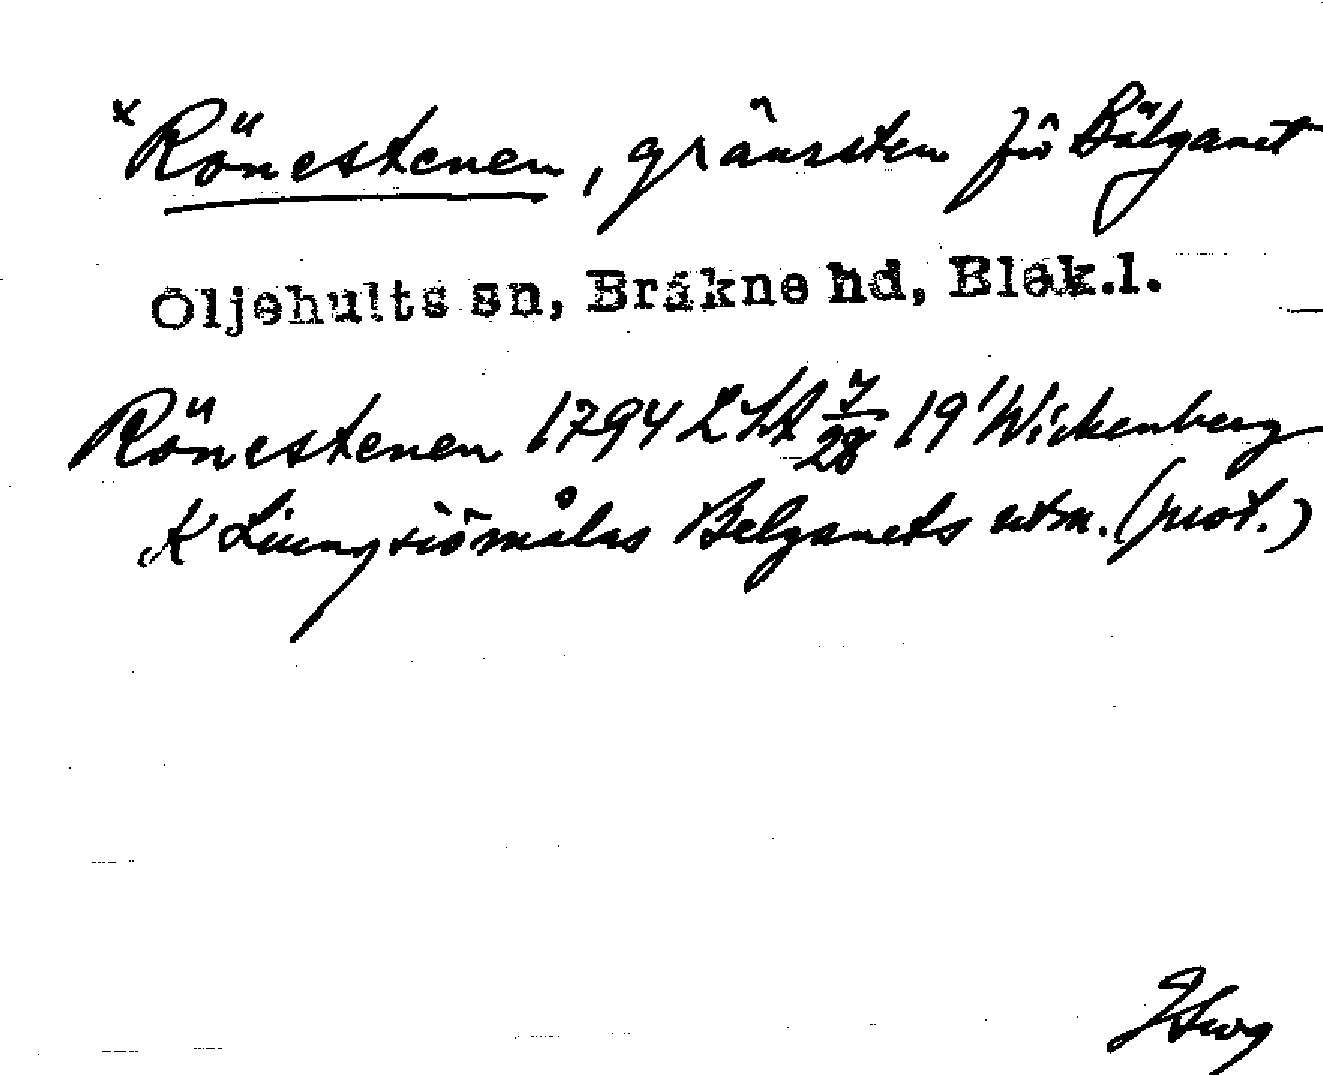 *Rönestenen, gränssten för Bälganet
Öljehults sn, Bräkne hd, Blek.l.
Rönestenen 1794 LSA 7/28 19' Wickenberg
K Ljungsiömålas Belganets utm. (prot.)